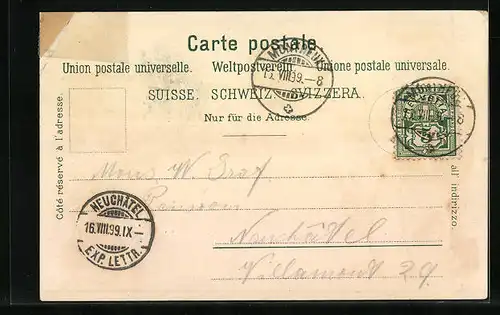 Carte postale
Union postale universelle. Weltpostverein. Unione postale universale.
MONTREUX
15.VIII.99.–8
SUISSE. SCHWEIZ. SVIZZERA.
Nur für die Adresse.
Côté réservé à l'adresse.
all' indirizzo.
MONTREUX
HELVETIA
5
Mons W Graf
Pension
Neuchâtel
Villamont 29
NEUCHÂTEL
16.VIII.99.IX–
EXP. LETTR.